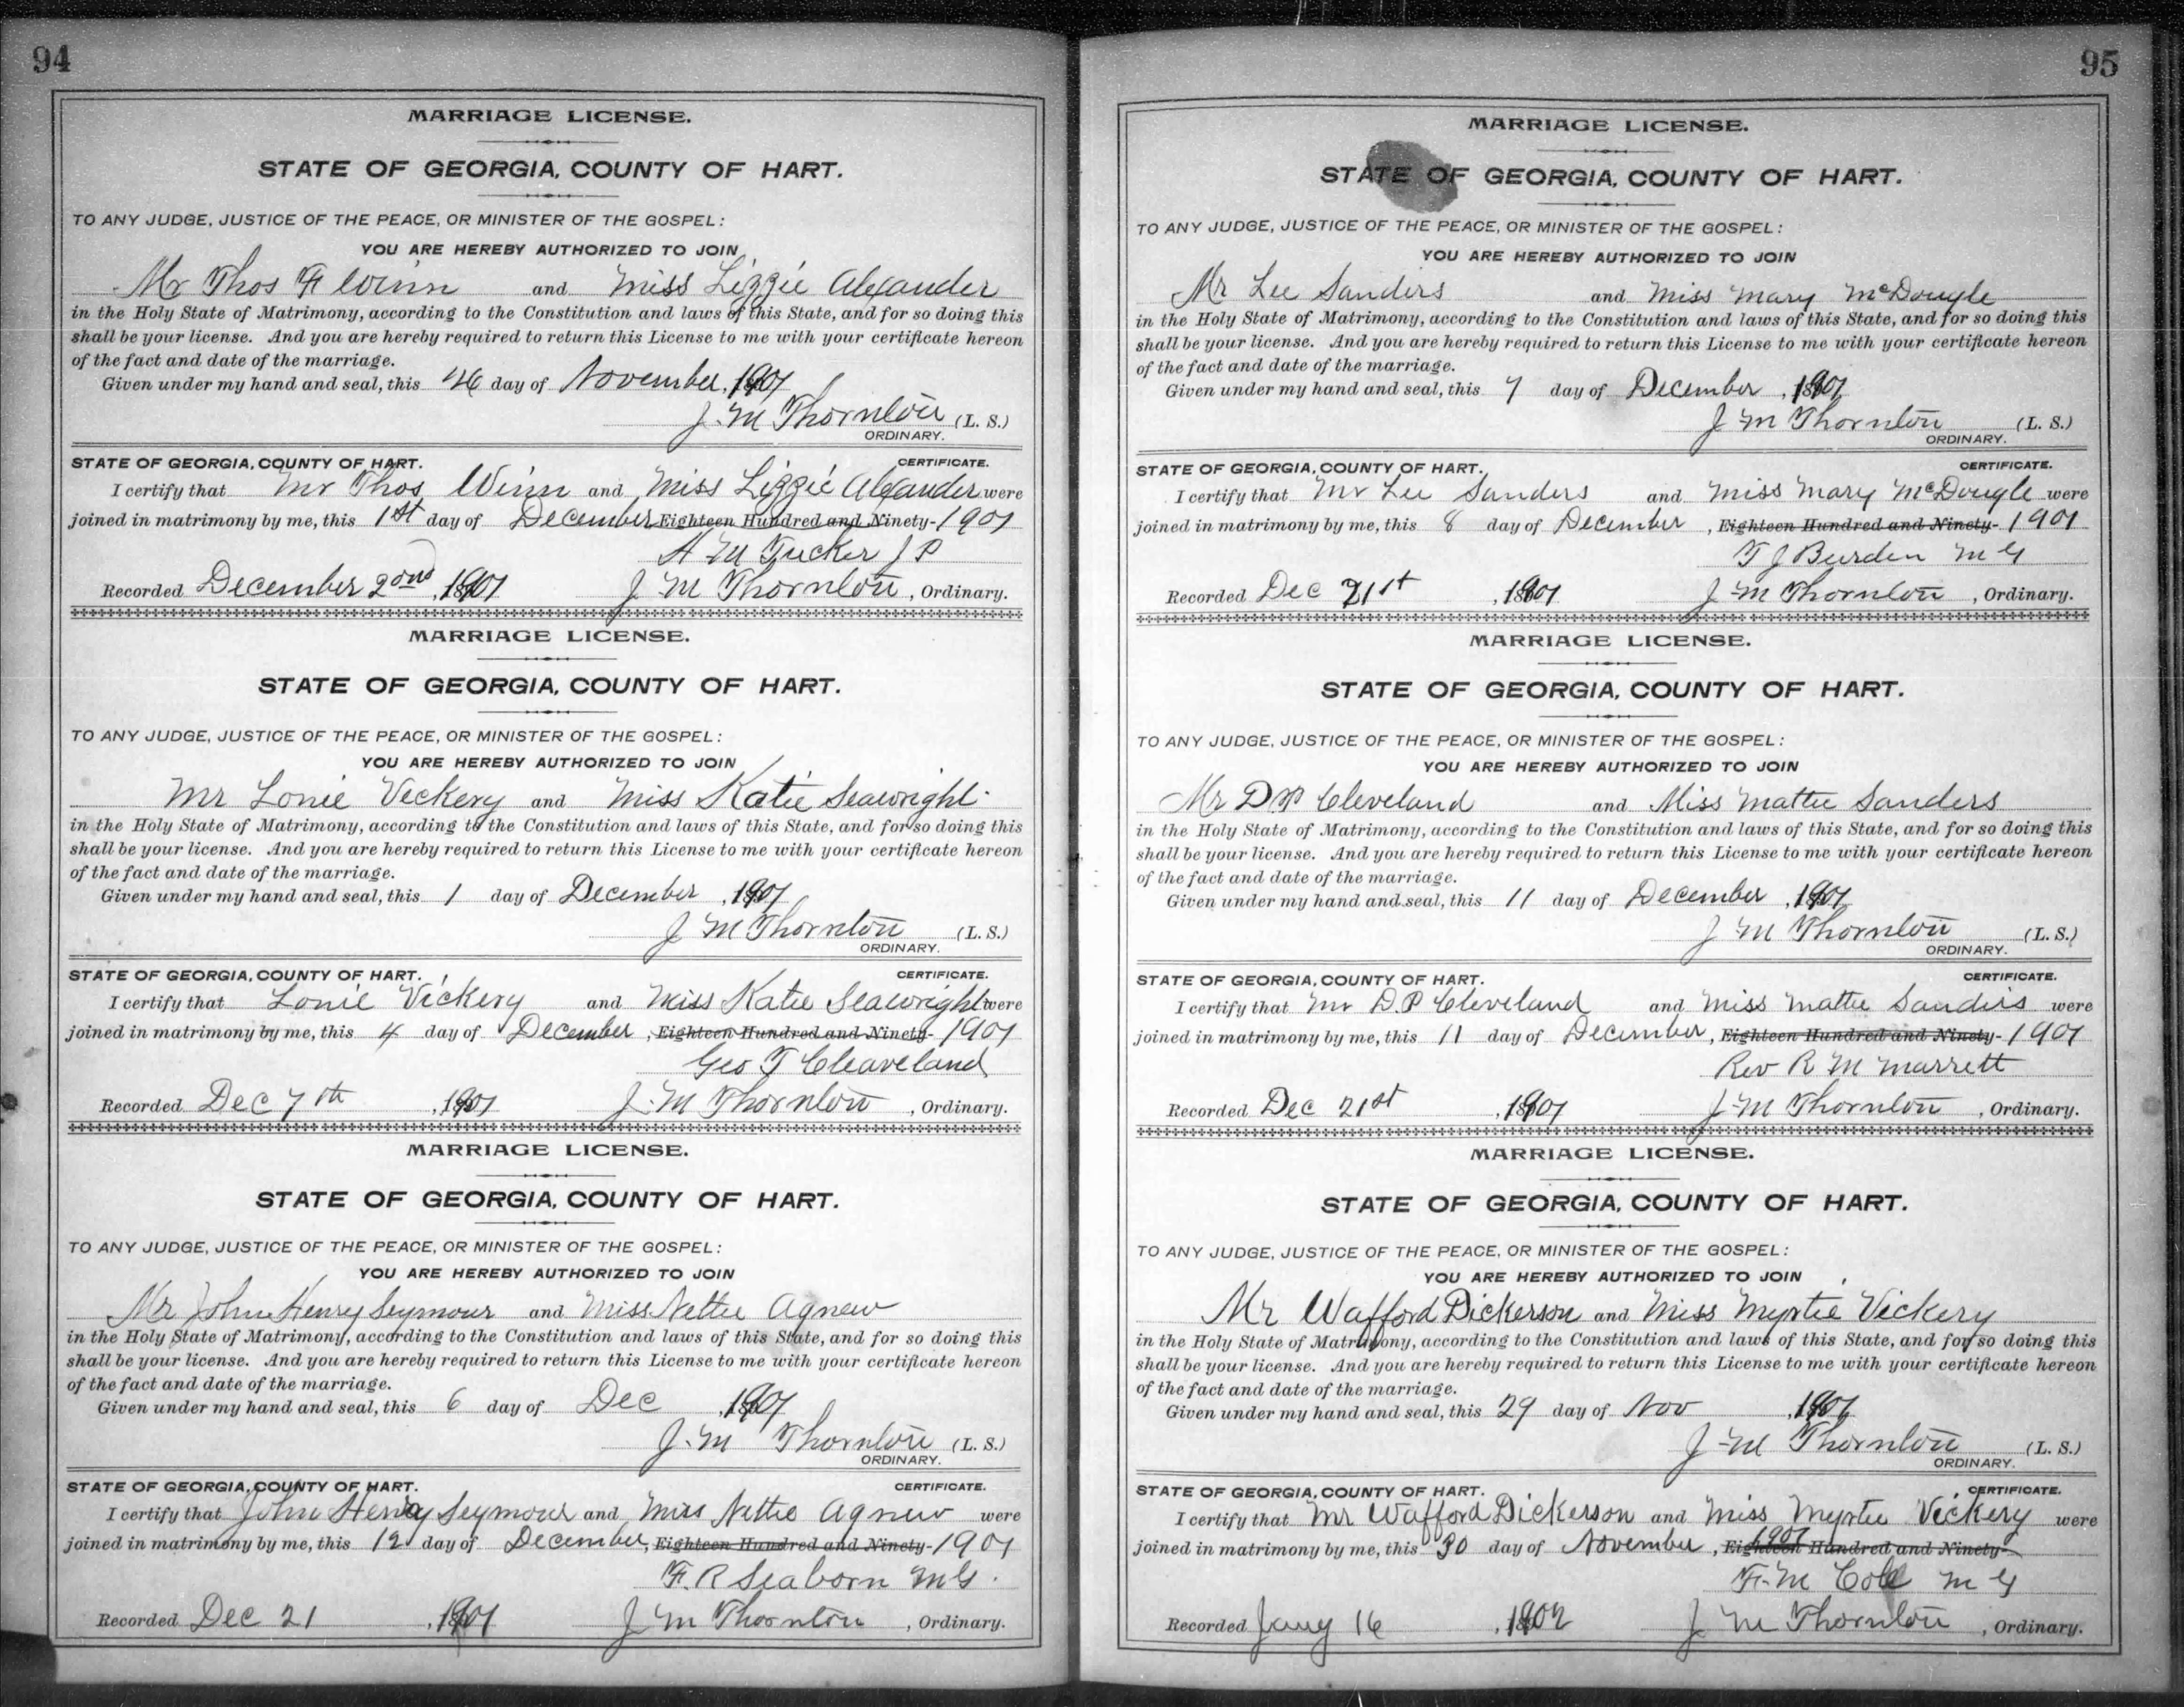 94
MARRIAGE LICENSE.
STATE OF GEORGIA, COUNTY OF HART.
TO ANY JUDGE, JUSTICE OF THE PEACE, OR MINISTER OF THE GOSPEL:
YOU ARE HEREBY AUTHORIZED TO JOIN
Mr Thos F Winn and Miss Lizzie Alexander
in the Holy State of Matrimony, according to the Constitution and laws of this State, and for so doing this
shall be your license. And you are hereby required to return this License to me with your certificate hereon
of the fact and date of the marriage.
Given under my hand and seal, this 26 day of November, 1901
J. M Thornton (L. S.)
ORDINARY.
STATE OF GEORGIA, COUNTY OF HART. CERTIFICATE.
I certify that Mr Thos Winn and Miss Lizzie Alexander were
joined in matrimony by me, this 1st day of December Eighteen Hundred and Ninety- 1901
H M Tucker J P
Recorded December 2ond, 1901 J M Thornton, Ordinary.
MARRIAGE LICENSE.
STATE OF GEORGIA, COUNTY OF HART.
TO ANY JUDGE, JUSTICE OF THE PEACE, OR MINISTER OF THE GOSPEL:
YOU ARE HEREBY AUTHORIZED TO JOIN
Mr Lonie Vickery and Miss Katie Seawright
in the Holy State of Matrimony, according to the Constitution and laws of this State, and for so doing this
shall be your license. And you are hereby required to return this License to me with your certificate hereon
of the fact and date of the marriage.
Given under my hand and seal, this 1 day of December, 1901
J M Thornton (L. S.)
ORDINARY.
STATE OF GEORGIA, COUNTY OF HART. CERTIFICATE.
I certify that Lonie Vickery and Miss Katie Seawright were
joined in matrimony by me, this 4 day of December, Eighteen Hundred and Ninety- 1901
Geo T Cleaveland
Recorded Dec 7th, 1901 J. M Thornton, Ordinary.
MARRIAGE LICENSE.
STATE OF GEORGIA, COUNTY OF HART.
TO ANY JUDGE, JUSTICE OF THE PEACE, OR MINISTER OF THE GOSPEL:
YOU ARE HEREBY AUTHORIZED TO JOIN
Mr John Henry Seymour and Miss Nettie Agnew
in the Holy State of Matrimony, according to the Constitution and laws of this State, and for so doing this
shall be your license. And you are hereby required to return this License to me with your certificate hereon
of the fact and date of the marriage.
Given under my hand and seal, this 6 day of Dec, 1901
J. M Thornton (L. S.)
ORDINARY.
STATE OF GEORGIA, COUNTY OF HART. CERTIFICATE.
I certify that John Henry Seymour and Miss Nettie Agnew were
joined in matrimony by me, this 12 day of December, Eighteen Hundred and Ninety- 1901
F. R Seaborn M G.
Recorded Dec 21, 1901 J M Thornton, Ordinary.
95
MARRIAGE LICENSE.
STATE OF GEORGIA, COUNTY OF HART.
TO ANY JUDGE, JUSTICE OF THE PEACE, OR MINISTER OF THE GOSPEL:
YOU ARE HEREBY AUTHORIZED TO JOIN
Mr Lee Sanders and Miss Mary McDougle
in the Holy State of Matrimony, according to the Constitution and laws of this State, and for so doing this
shall be your license. And you are hereby required to return this License to me with your certificate hereon
of the fact and date of the marriage.
Given under my hand and seal, this 7 day of December, 1901
J M Thornton (L. S.)
ORDINARY.
STATE OF GEORGIA, COUNTY OF HART. CERTIFICATE.
I certify that Mr Lee Sanders and Miss Mary McDougle were
joined in matrimony by me, this 8 day of December, Eighteen Hundred and Ninety- 1901
T J Burden M G
Recorded Dec 21st, 1901 J M Thornton, Ordinary.
MARRIAGE LICENSE.
STATE OF GEORGIA, COUNTY OF HART.
TO ANY JUDGE, JUSTICE OF THE PEACE, OR MINISTER OF THE GOSPEL:
YOU ARE HEREBY AUTHORIZED TO JOIN
Mr D P Cleveland and Miss Mattie Sanders
in the Holy State of Matrimony, according to the Constitution and laws of this State, and for so doing this
shall be your license. And you are hereby required to return this License to me with your certificate hereon
of the fact and date of the marriage.
Given under my hand and seal, this 11 day of December, 1901
J M Thornton (L. S.)
ORDINARY.
STATE OF GEORGIA, COUNTY OF HART. CERTIFICATE.
I certify that Mr D. P Cleveland and Miss Mattie Sanders were
joined in matrimony by me, this 11 day of December, Eighteen Hundred and Ninety- 1901
Rev R M Marrett
Recorded Dec 21st, 1901 J M Thornton, Ordinary.
MARRIAGE LICENSE.
STATE OF GEORGIA, COUNTY OF HART.
TO ANY JUDGE, JUSTICE OF THE PEACE, OR MINISTER OF THE GOSPEL:
YOU ARE HEREBY AUTHORIZED TO JOIN
Mr Wafford Dickerson and Miss Myrtie Vickery
in the Holy State of Matrimony, according to the Constitution and laws of this State, and for so doing this
shall be your license. And you are hereby required to return this License to me with your certificate hereon
of the fact and date of the marriage.
Given under my hand and seal, this 29 day of Nov, 1901
J M Thornton (L. S.)
ORDINARY.
STATE OF GEORGIA, COUNTY OF HART. CERTIFICATE.
I certify that Mr Wafford Dickerson and Miss Myrtie Vickery were
joined in matrimony by me, this 30 day of November, 1901 Eighteen Hundred and Ninety-
F. M Cole M G
Recorded Jany 16, 1902 J M Thornton, Ordinary.